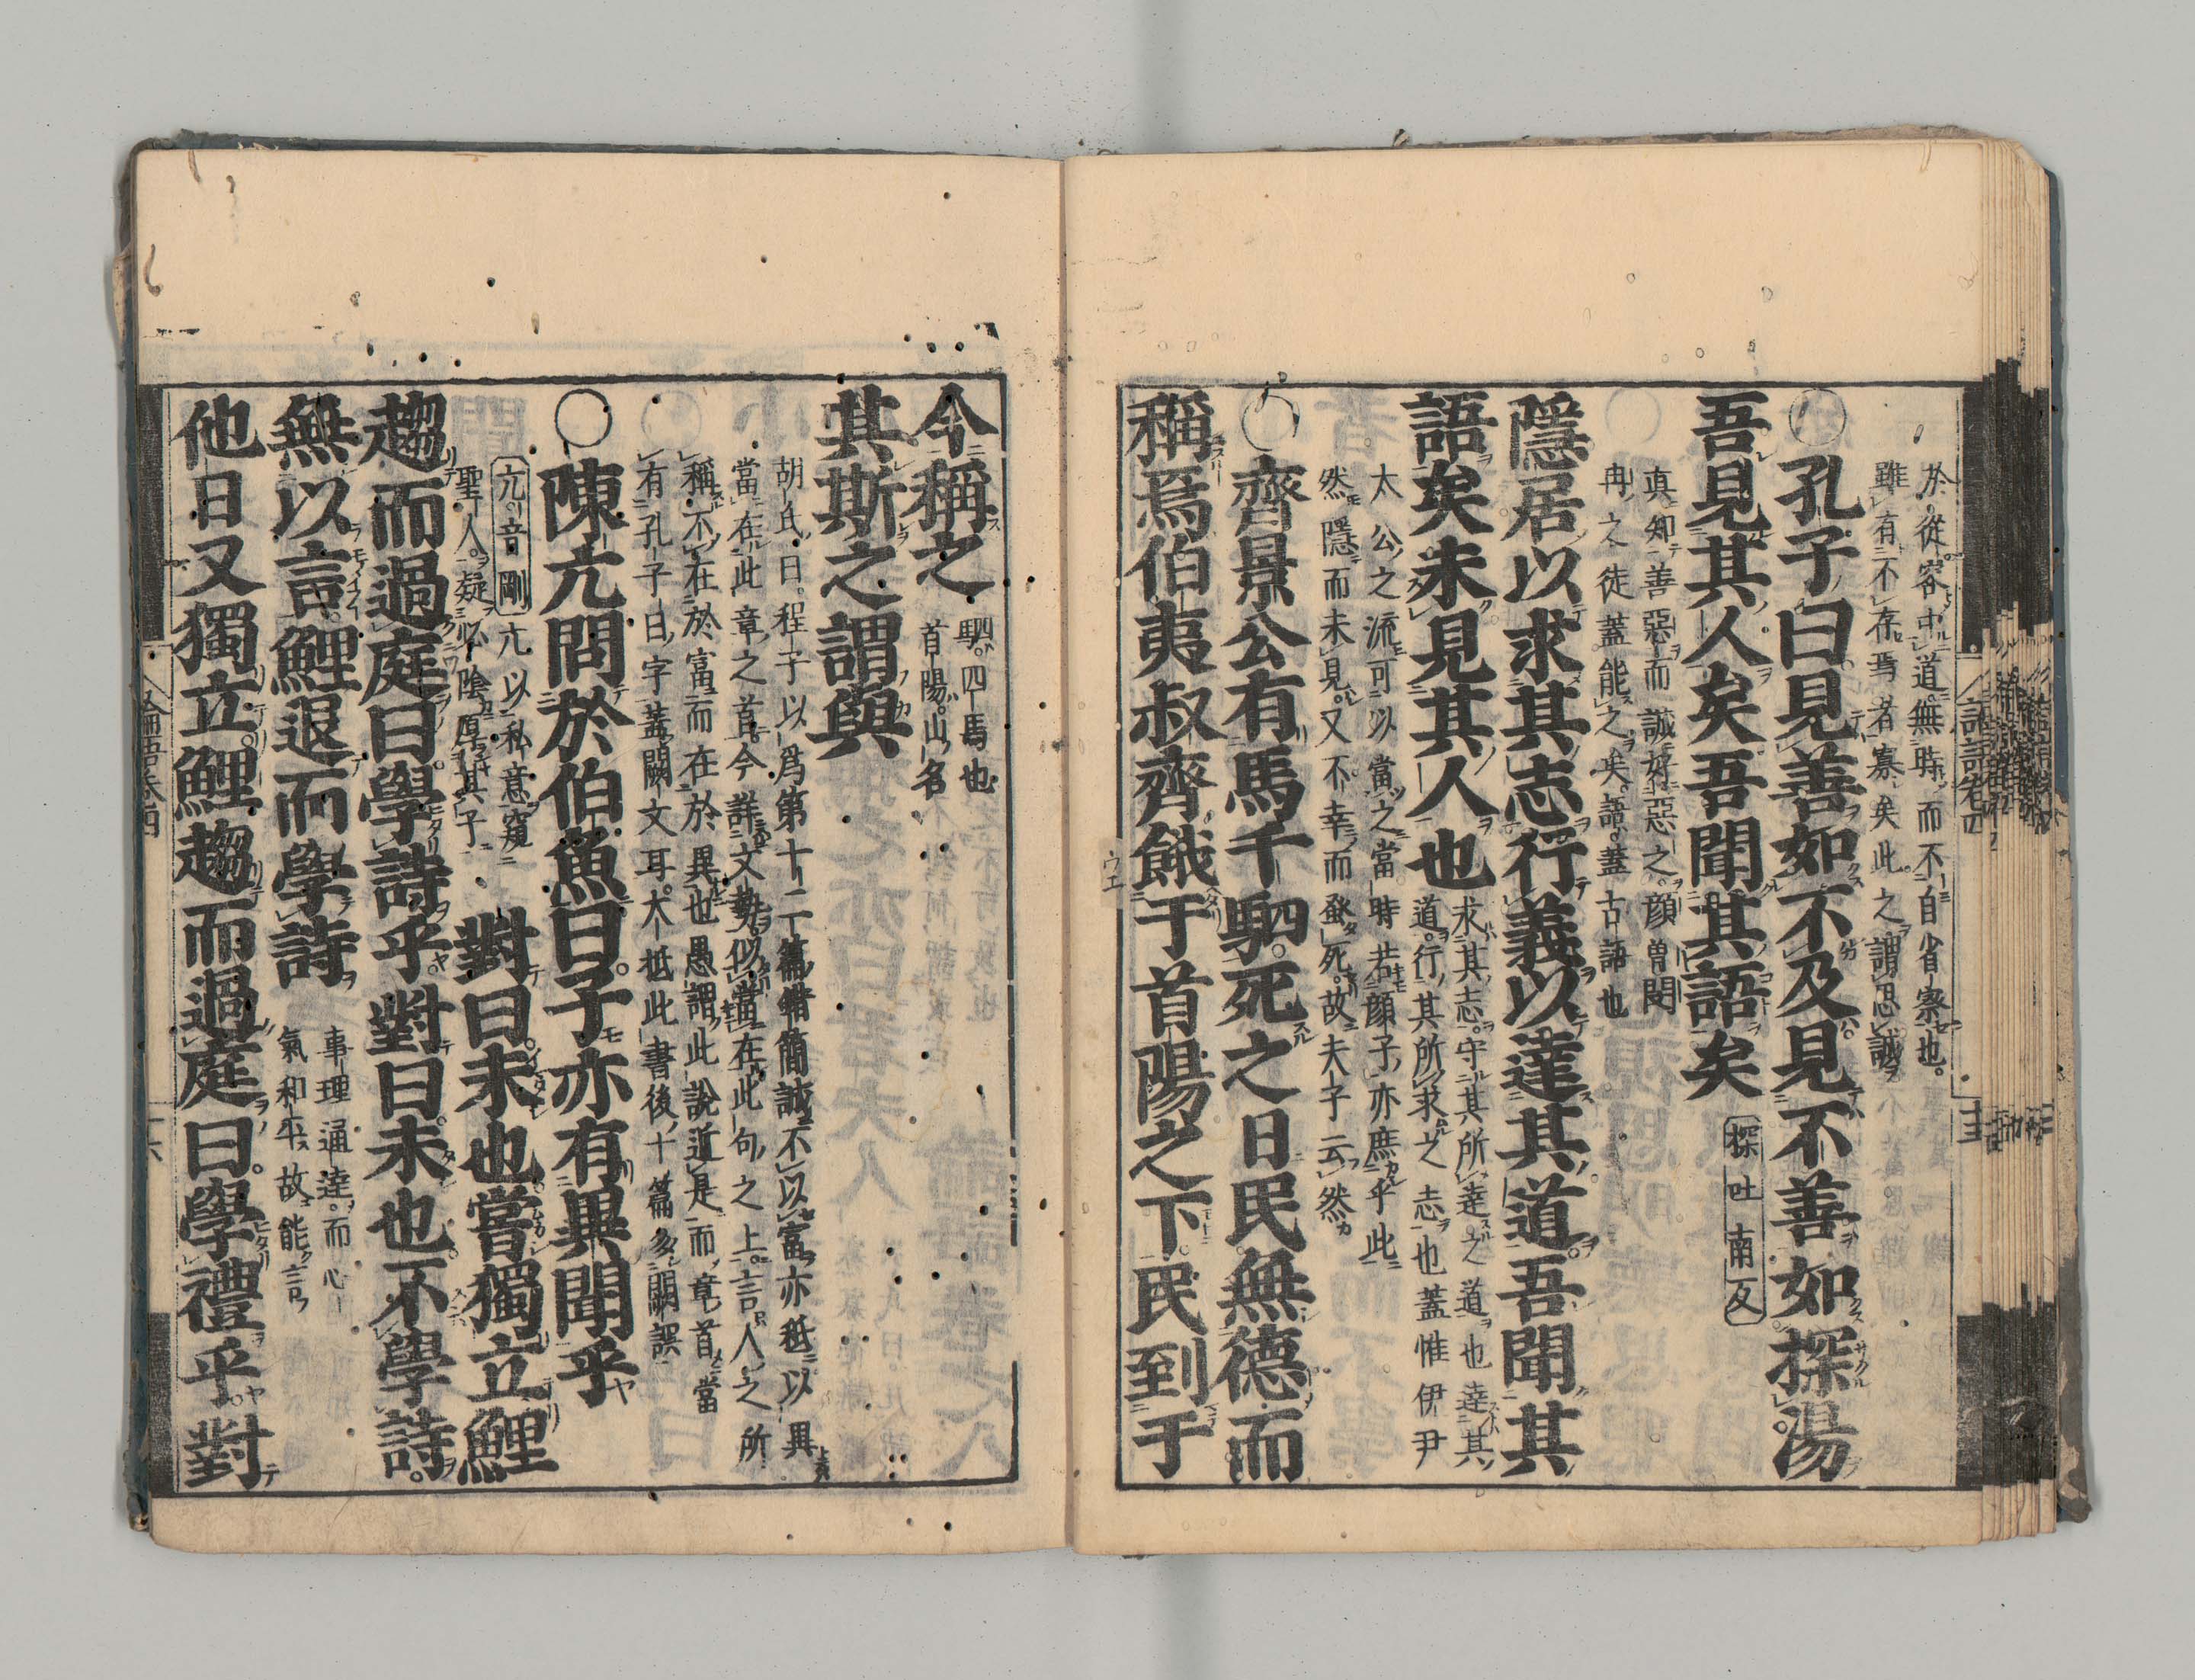 於從容中道無時而不自省察也
雖有不存焉者寡矣此之謂思誠
○孔子曰見善如不及見不善如探湯
吾見其人矣吾聞其語矣
探吐南反
真知善惡而誠好惡之顔曾閔
冉之徒蓋能之矣語蓋古語也
隱居以求其志行義以達其道吾聞其
語矣未見其人也
求其志守其所達之道也達其
道行其所求之志也蓋惟伊尹
太公之流可以當之當時若顔子亦庶乎此
然隱而未見又不幸而蚤死故夫子云然
○齊景公有馬千駟死之日民無德而
稱焉伯夷叔齊餓于首陽之下民到于
今稱之
駟四馬也
首陽山名
其斯之謂與
胡氏曰程子以爲第十二篇錯簡誠不以富亦秪以異
當在此章之首今詳文勢似當在此句之上言人之所
稱不在於富而在於異也愚謂此說近是而章首當
有孔子曰字蓋闕文耳大抵此書後十篇多闕誤
○陳亢問於伯魚曰子亦有異聞乎
亢音剛
亢以私意窺
聖人疑必陰厚其子
對曰未也嘗獨立鯉
趨而過庭曰學詩乎對曰未也不學詩
無以言鯉退而學詩
事理通達而心
氣和平故能言
他日又獨立鯉趨而過庭曰學禮乎對